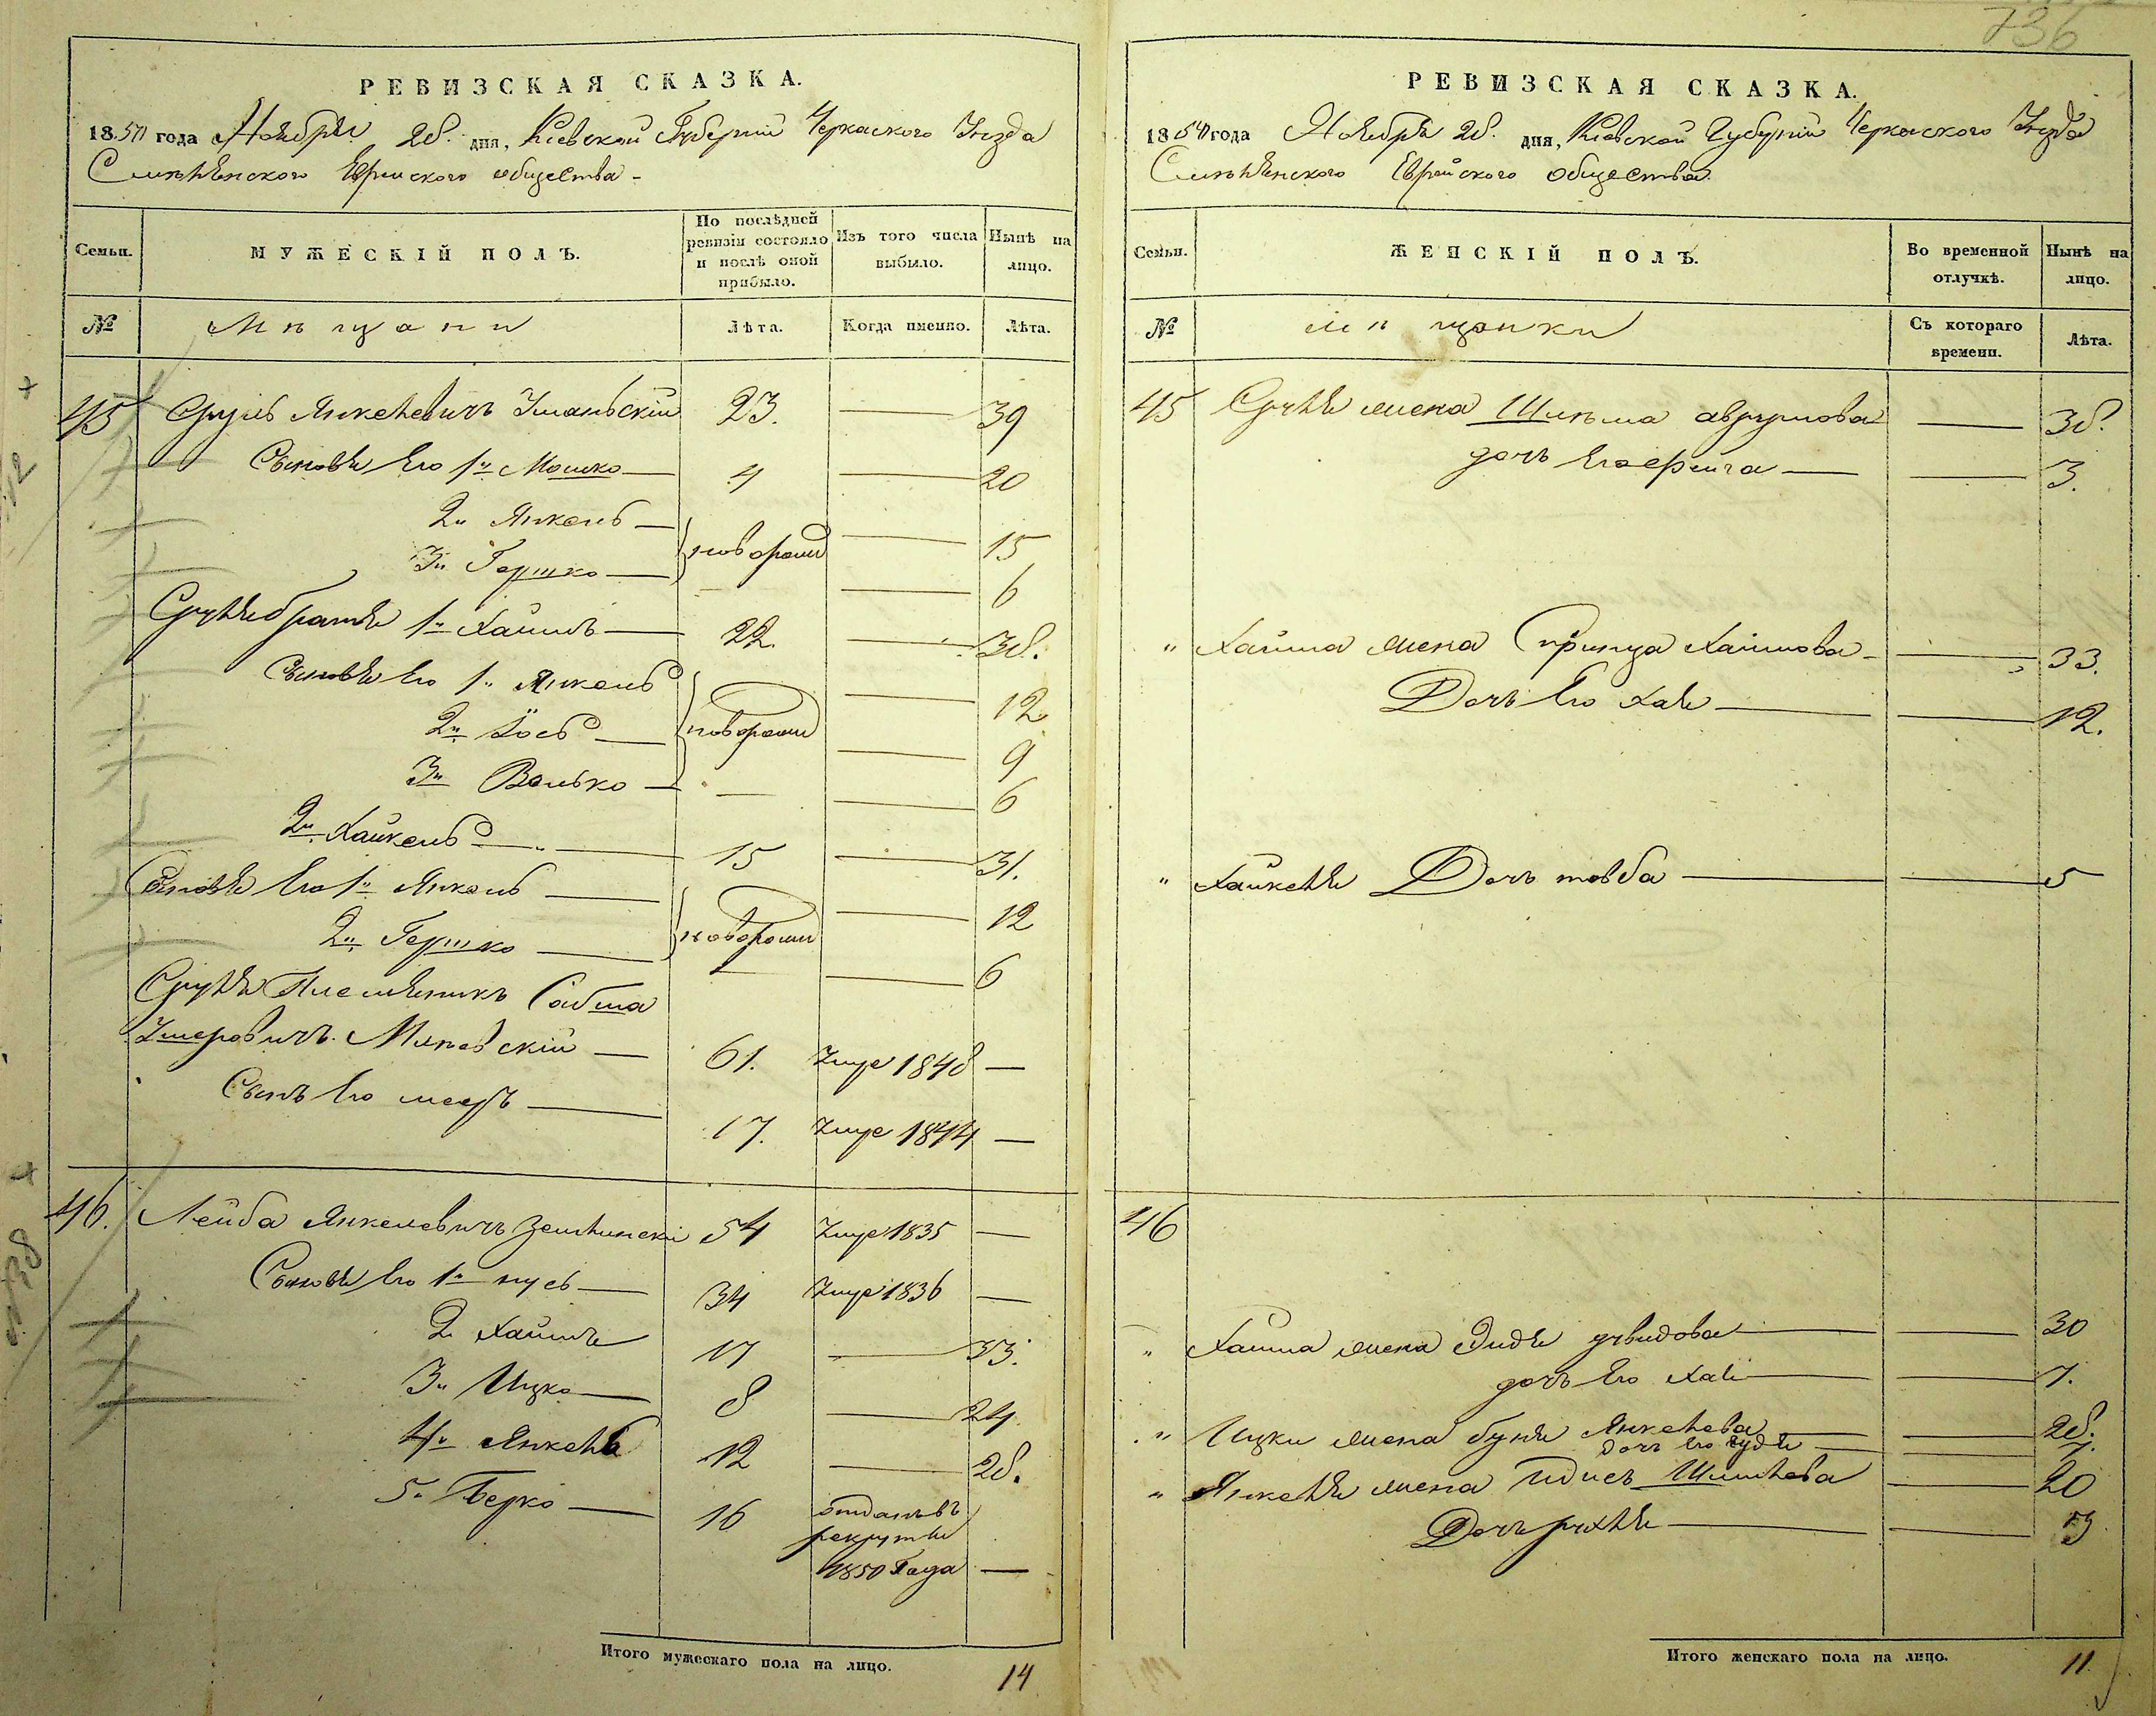 736
РЕВИЗСКАЯ СКАЗКА.
1850 года Ноября 28. дня, Кіевской Губерніи Черкаского Уезда
Смѣлѣнского Еврейского общества
Семьи.
МУЖЕСКІЙ ПОЛЪ.
По послѣдней ревизіи состояло и послѣ оной прибыло.
Изъ того числа выбыло.
Нынѣ на лицо.
№
Мѣщани
Лѣта.
Когда именно.
Лѣта.
45 Сруль Янкелевичъ Уманьскій 23. — 39
Сыновя Его 1й Мошко — 4 — 20
2й Янкель — новорожд — 15
3й Гершко — — 6
Срулябратя 1й Хаимъ — 22. — 38.
Сыновя Его 1й Янкель новорожд — 12
2й Іось — — 9
3й Волько — — 6
2й Хайкель — 15 — 31.
Сыновя Его 1й Янкель — новорожд — 12
2й Гершко — — 6
Суля Племяникъ
61. Умре 1848 —
Сынъ Его меэръ — 17. Умре 1844 —
46. Лейба Янкелевичъ 54 Умре 1835 —
Сыновя Его 1й нусь — 34 Умре 1836 —
2й Хаимъ 17 — 33.
3й Ицко — 8 — 24
4й Янкель 12 — 28.
5й Берко — 16 отданъвъ
рекруты
1850 Года —
Итого мужескаго пола на лицо. 14
РЕВИЗСКАЯ СКАЗКА.
1850 года Ноября 28. дня, Кіевской Губерніи Черкаского Уезда
Смѣлѣнского Еврейского общества
Семьи.
ЖЕНСКІЙ ПОЛЪ.
Во временной отлучкѣ.
Нынѣ на лицо.
№
мѣщанки
Съ котораго времени.
Лѣта.
45 Суля жена аврумова — 38.
дочь Его фейга — — 3.
" Хаима жена Принца Хаимова — 33.
Дочь Его Хая — — 12.
" Хайкеля Дочь товба — — 5
46
" Хаима жена Эидя двидова — — 30
дочь Его Хая — — 7.
" Ицки жена буня Янкелева — — 28.
дочь Его — — 7.
" Янкеля жена Шмилева — 20
Дочь рухля — — 3
Итого женскаго пола на лицо. 11